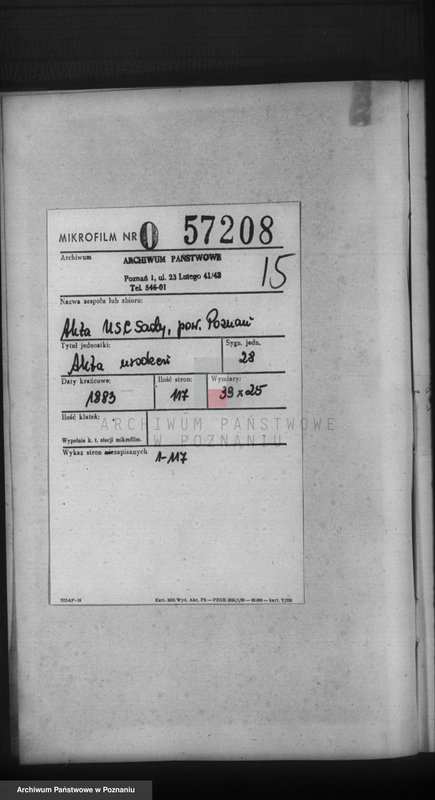 MIKROFILM NR 0 57208
Archiwum
ARCHIWUM PAŃSTWOWE
Poznań 1, ul. 23 Lutego 41/43
Tel. 546-01
15
Nazwa zespołu lub zbioru:
Akta USC Sady, pow. Poznań
Tytuł jednostki:
Akta urodzeń
Sygn. jedn.
28
Daty krańcowe:
1883
Ilość stron:
117
Wymiary:
39 x 25
Ilość klatek:
Wypełnia k. t. stacji mikrofilm.
ARCHIWUM PAŃSTWOWE
W POZNANIU
Wykaz stron niezapisanych
1-117
NDAP-16
Archiwum Państwowe w Poznaniu